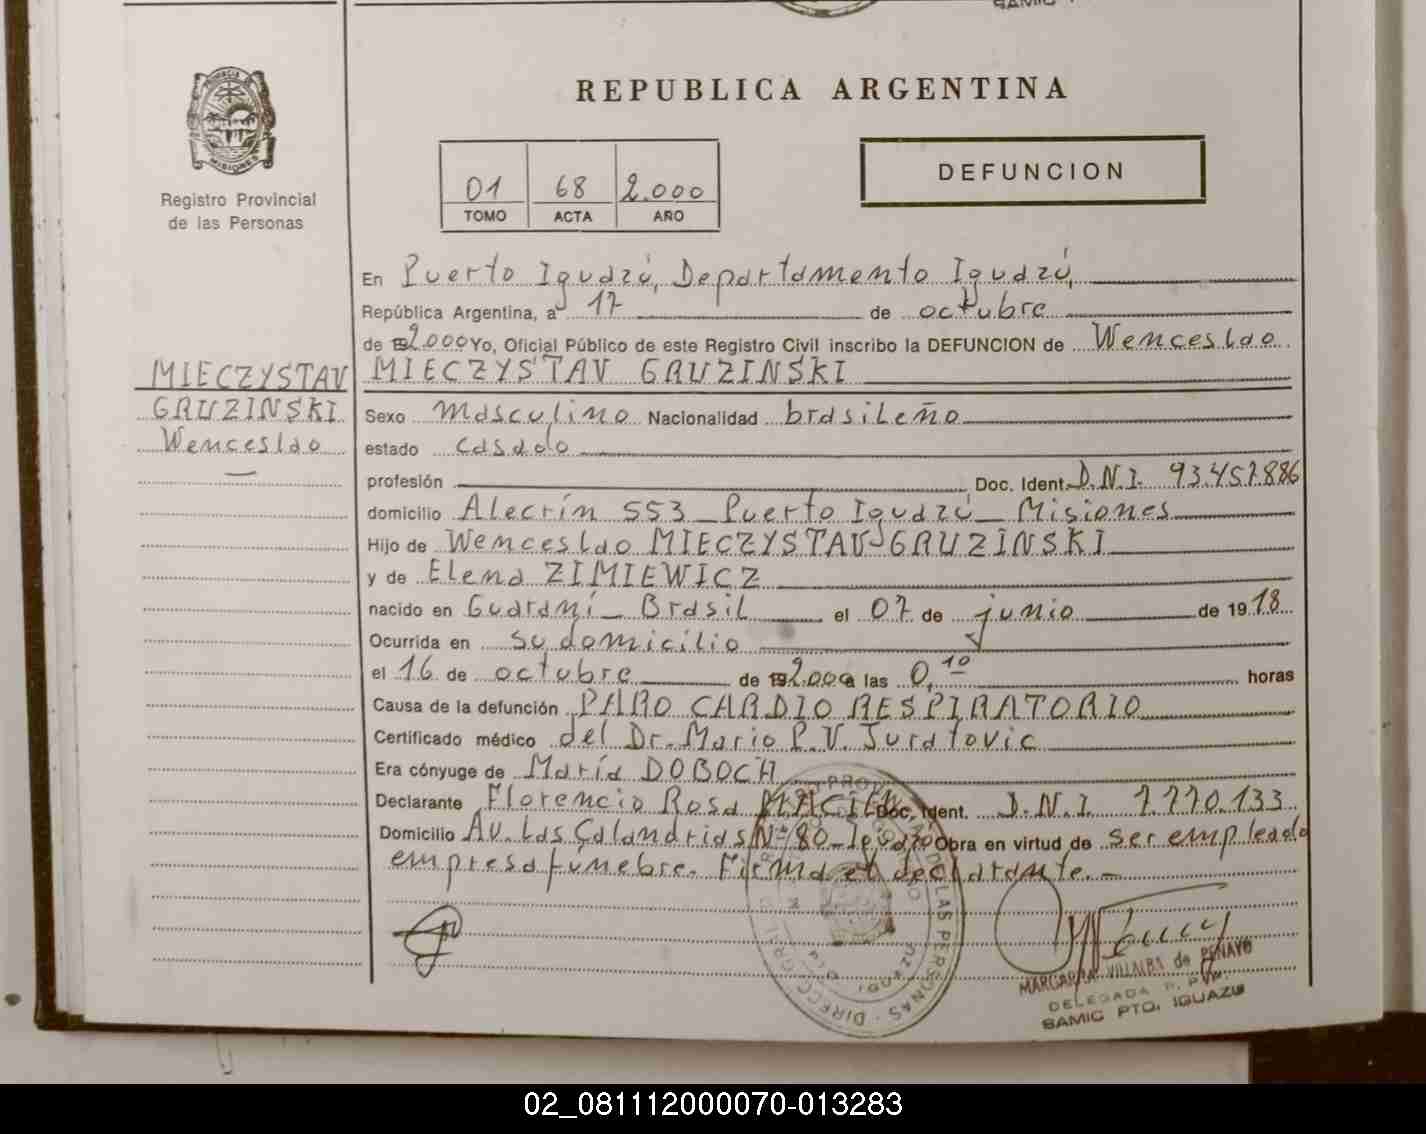 REPUBLICA ARGENTINA
PROVINCIA DE MISIONES
Registro Provincial
de las Personas
01 68 2.000
TOMO ACTA AÑO
DEFUNCION
En Puerto Iguazú, Departamento Iguazú,
República Argentina, a 17 de octubre
de 2.000 Yo, Oficial Público de este Registro Civil inscribo la DEFUNCION de Wenceslao
MIECZYSTAV GRUZINSKI
MIECZYSTAV
GRUZINSKI
Wenceslao
Sexo masculino Nacionalidad brasileño
estado casado
profesión Doc. Ident. D.N.I. 93.457.886
domicilio Alecrín 553 _ Puerto Iguazú _ Misiones
Hijo de Wenceslao MIECZYSTAV GRUZINSKI
y de Elena ZIMIEWICZ
nacido en Guaraní _ Brasil el 07 de junio de 1918
Ocurrida en su domicilio
el 16 de octubre de 2.000 a las 0,10 horas
Causa de la defunción PARO CARDIO RESPIRATORIO
Certificado médico del Dr. Mario P. V. Juratovic
Era cónyuge de María DOBOCH
Declarante Florencio Rosa Doc. Ident. D.N.I. 7.770.133
Domicilio Av. Las Calandrias Nº 80 _ Iguazú Obra en virtud de ser empleado
empresa fúnebre. Firma el declarante. _
MARGARITA VILLALBA de PENAYO
DELEGADA R. P. P.
SAMIC PTO. IGUAZU
02_081112000070-013283